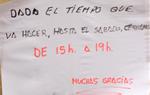 DADO EL TIEMPO QUE
VA HACER, HASTA EL SABADO, CERRAMOS
DE 15h. A 19h.
MUCHAS GRACIAS